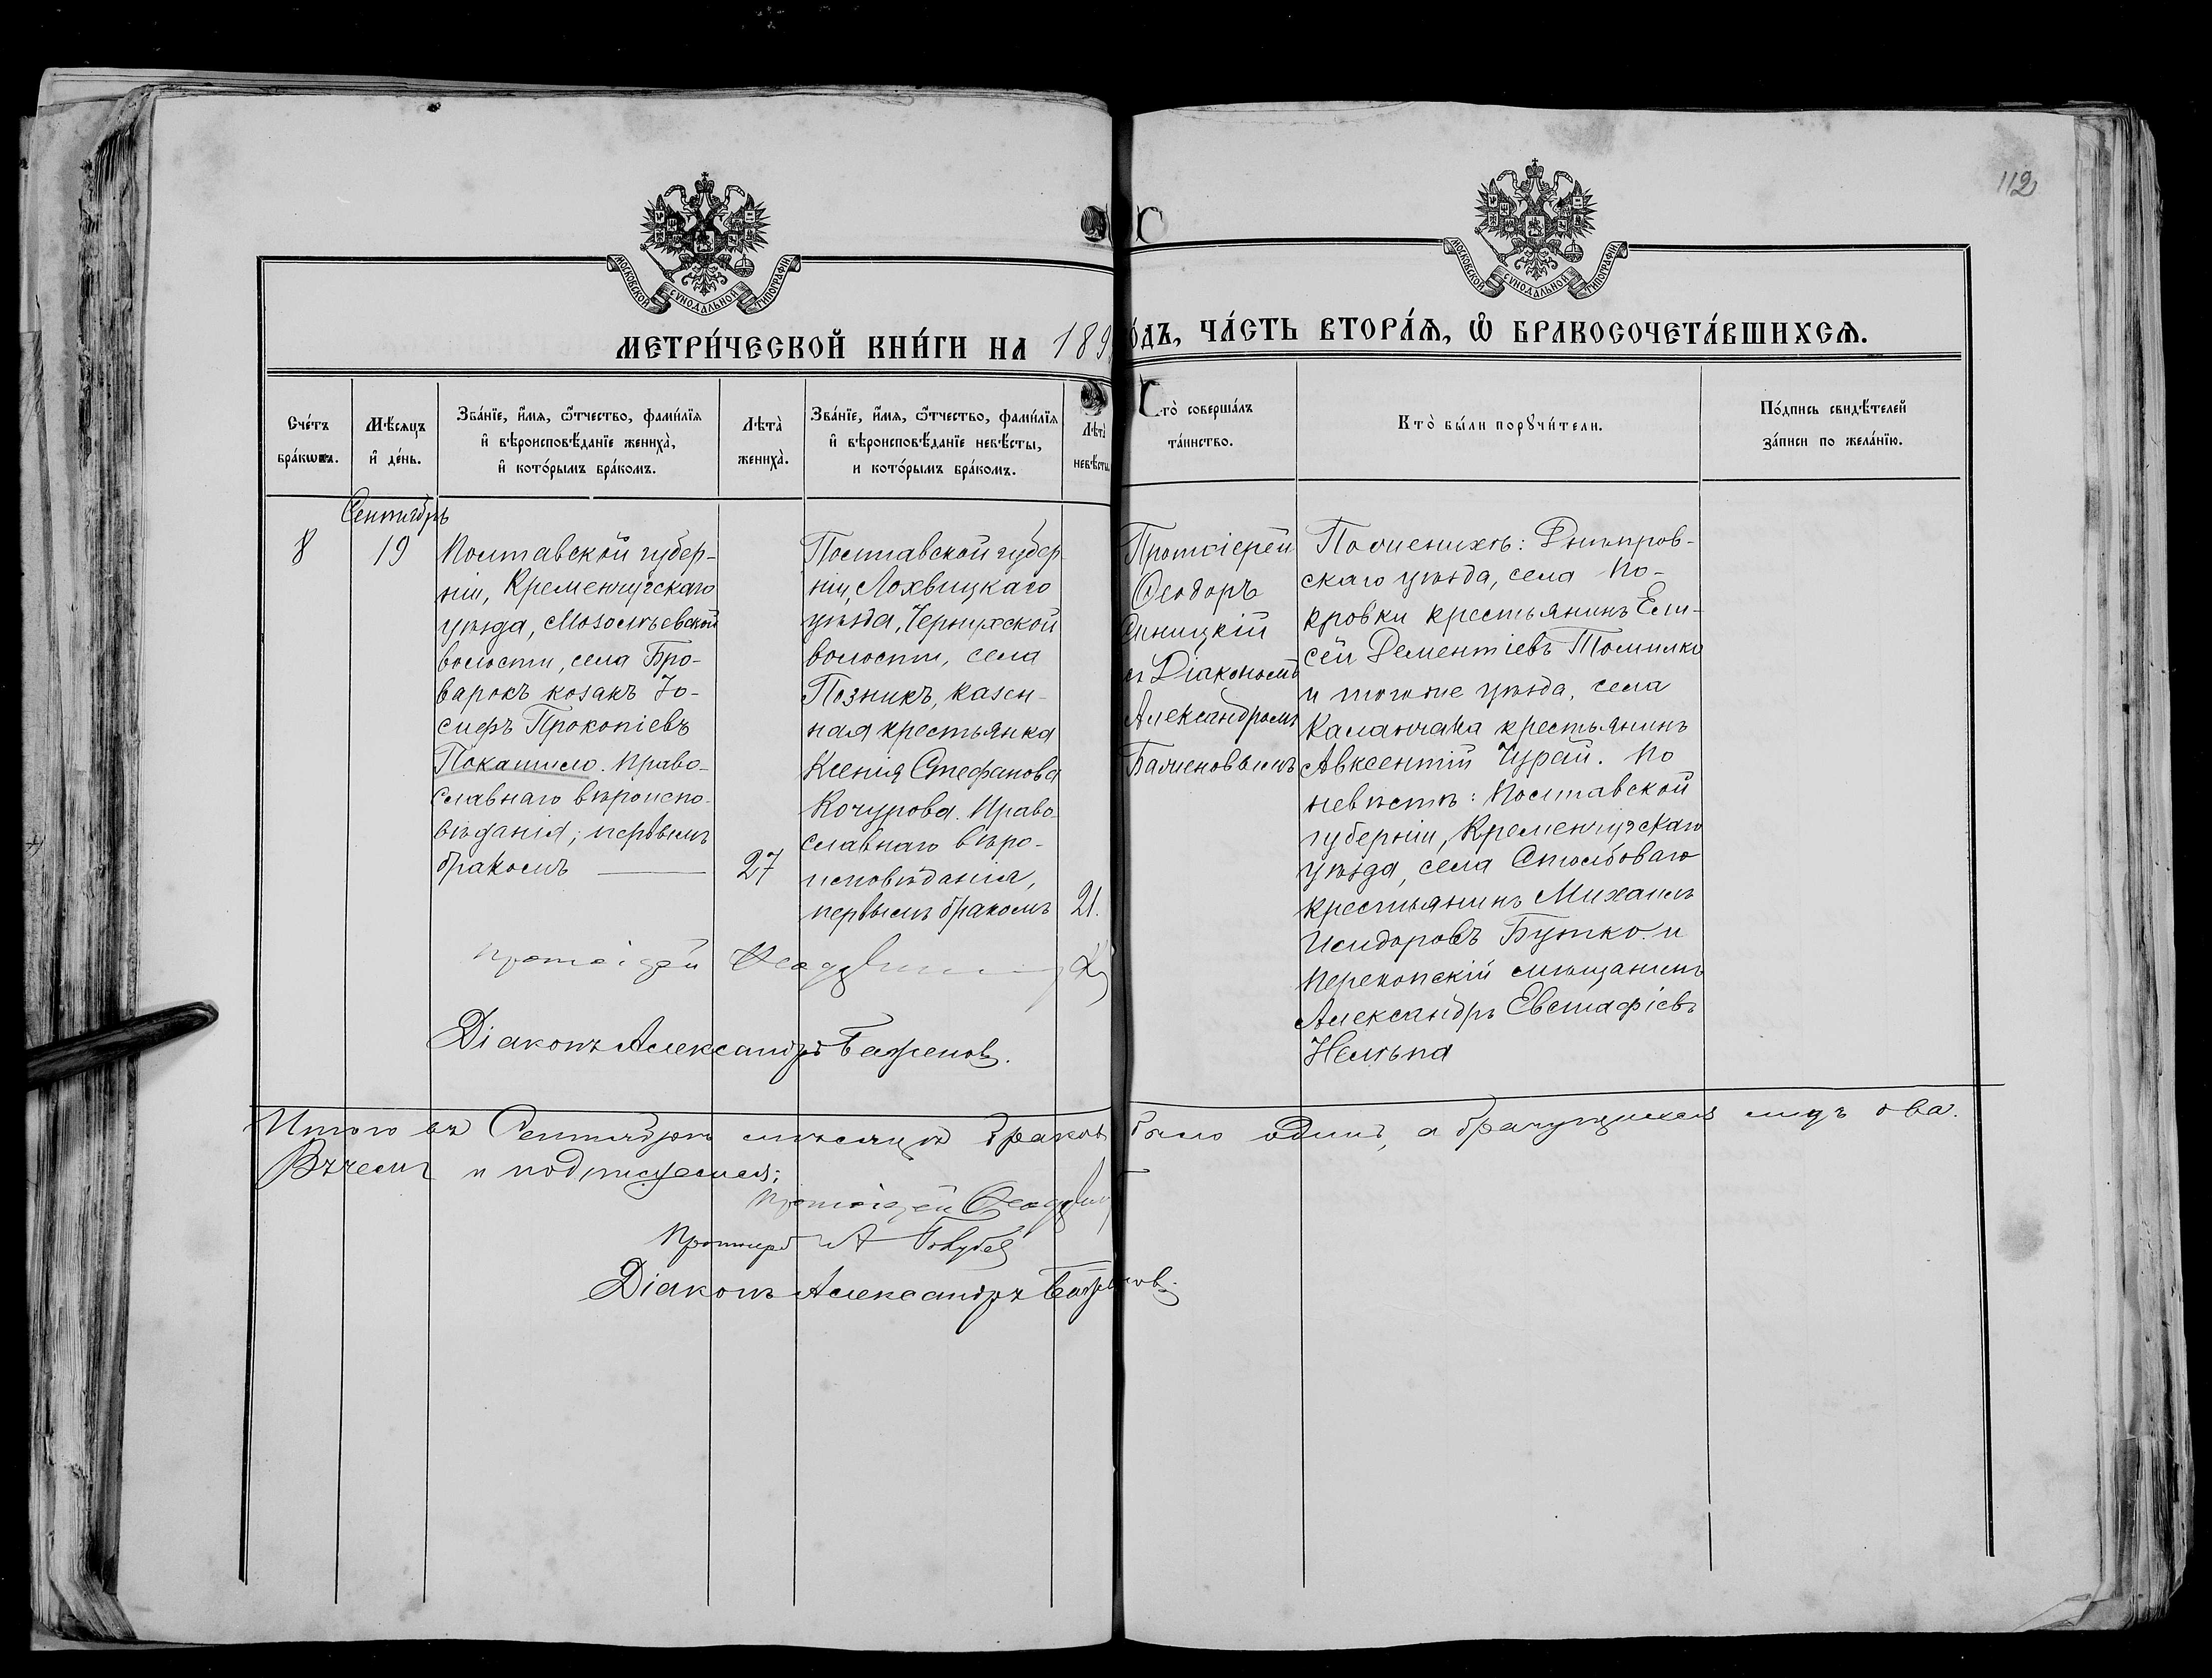 112
МОСКОВСКОЙ СѴНОДАЛЬНОЙ ТИПОГРАФІИ
МОСКОВСКОЙ СѴНОДАЛЬНОЙ ТИПОГРАФІИ
МЕТРИ́ЧЕСКОЙ КНИ́ГИ НА 189
О́ДЪ, ЧА́СТЬ ВТОРА́Ѧ, Ѽ БРАКОСОЧЕТА́ВШИХСѦ.
Сче́тъ
бра́кѡвъ.
Мѣ́сяцъ
и҆ де́нь.
Зва́нїе, и҆́мя, ѻ҆́тчество, фами́лїя
и҆ вѣроисповѣ́данїе жениха̀,
и҆ кото́рымъ бра́комъ.
Лѣта̀
жениха̀.
Зва́нїе, и҆́мя, ѻ҆́тчество, фами́лїя
и҆ вѣроисповѣ́данїе невѣ́сты,
и кото́рымъ бра́комъ.
Лѣта̀
невѣ́сты
то̀ соверша́лъ
та́инство.
Кто̀ бы́ли порꙋчи́тели.
По́дпись свидѣ́телей
за́писи по жела́нїю.
Сентябрь
8
19
Полтавской губер-
ніи, Кременчугскаго
уѣзда, Мозолѣевской
волости, села Бро-
варокъ козакъ Іо-
сифъ Прокопіевъ
Покатило. Право-
славнаго вѣроиспо-
вѣданія; первымъ
бракомъ
27
Полтавской губер-
ніи, Лохвицкаго
уѣзда, Чернухской
волости, села
Позникъ, казен-
ная крестьянка
Ксенія Стефанова
Кочурова. Право-
славнаго вѣро-
исповѣданія,
первымъ бракомъ
21.
Протоіерей
Ѳеодоръ
Синицкій
съ Діакономъ
Александромъ
Баженовымъ
По женихѣ: Днѣпров-
скаго уѣзда, села По-
кровки крестьянинъ Ели-
сей Дементіевъ Томилко
и тогоже уѣзда, села
Каланчака крестьянинъ
Авксентій Чурай. По
невѣстѣ: Полтавской
губерніи, Кременчугскаго
уѣзда, села Столбоваго
крестьянинъ Михаилъ
Исидоровъ Бутко и
Перекопскій мѣщанинъ
Александръ Евстафіевъ
Нелѣпа
Протоіерей
Діаконъ Александръ Баженовъ.
Итого въ Сентябрѣ мѣсяцѣ браковъ было одинъ, а брачущихся лицъ два.
и подписуемся:
Протоіерей
А Голубев
Діаконъ Александръ Баженовъ.